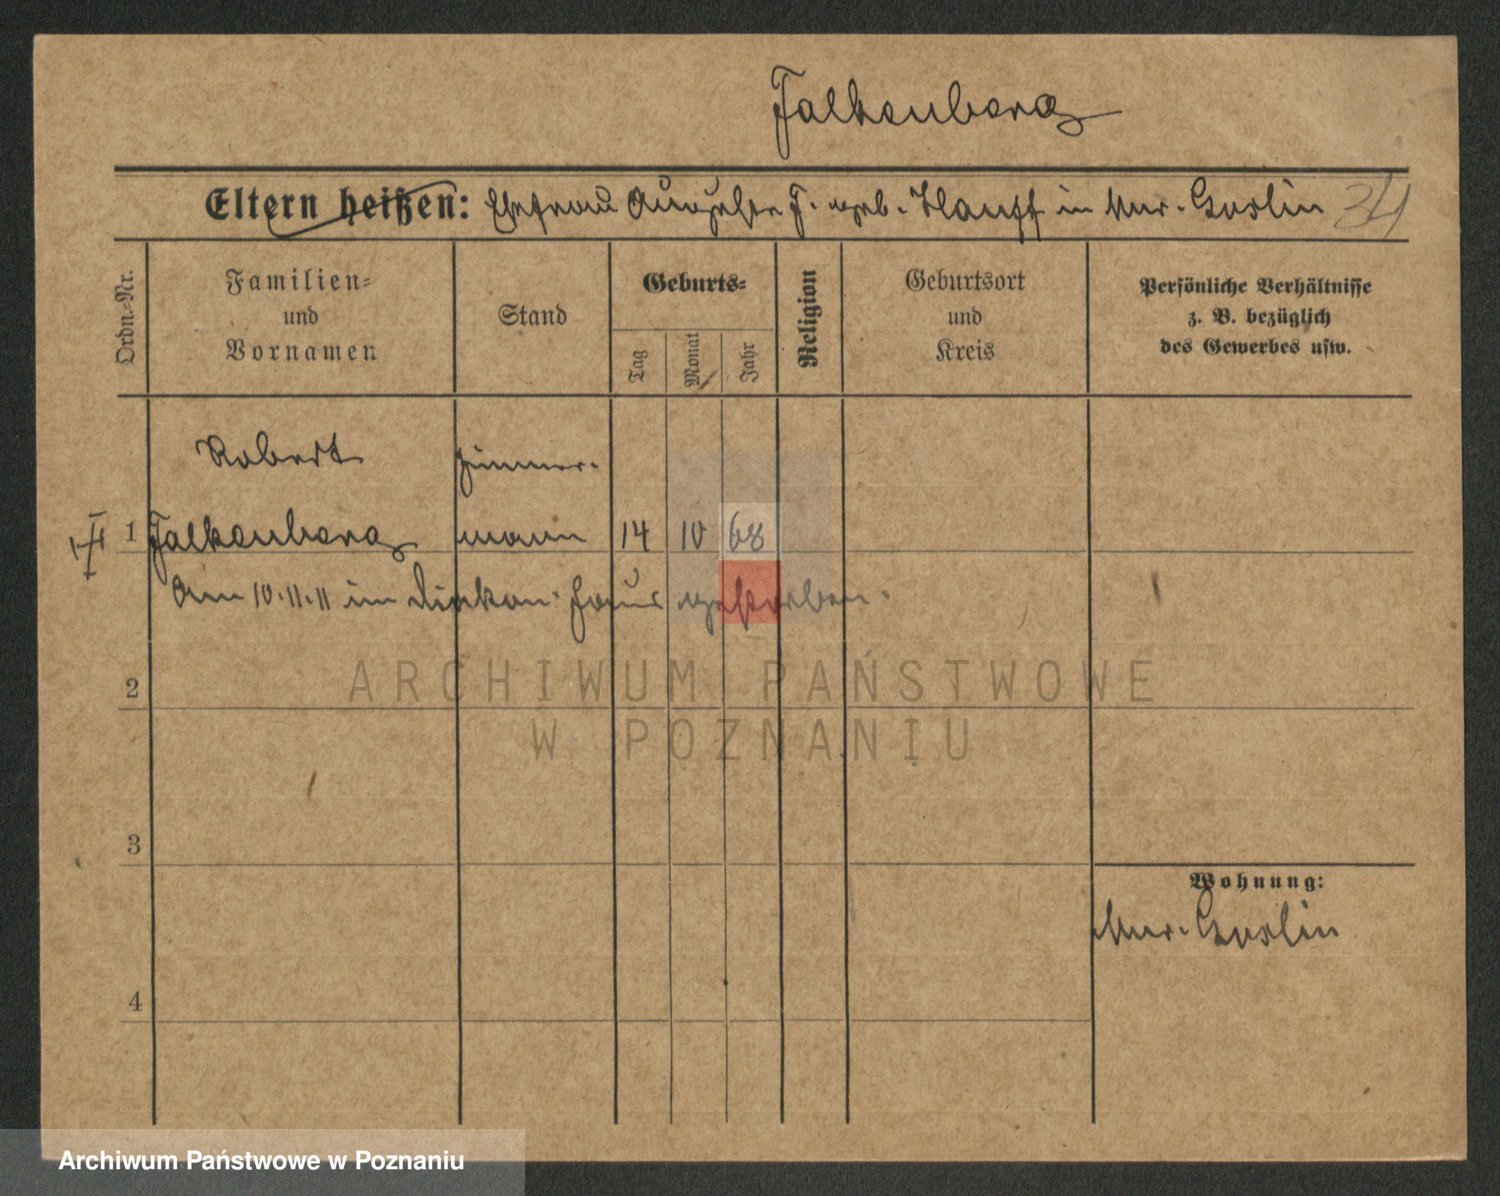 Falkenberg
Eltern heißen: Ehefrau Auguste F. geb. Hauff in Mur. Goslin 34
Ordn.=Nr.
Familien=
und
Vornamen
Stand
Geburts=
Tag
Monat
Jahr
Religion
Geburtsort
und
Kreis
Persönliche Verhältnisse
z. B. bezüglich
des Gewerbes usw.
Robert Zimmer-
1 Falkenberg mann 14 10 68
Am 10.11.11 im Diakon. Haus gestorben.
2
ARCHIWUM PAŃSTWOWE
W POZNANIU
3
Wohnung:
Mur. Goslin
4
Archiwum Państwowe w Poznaniu